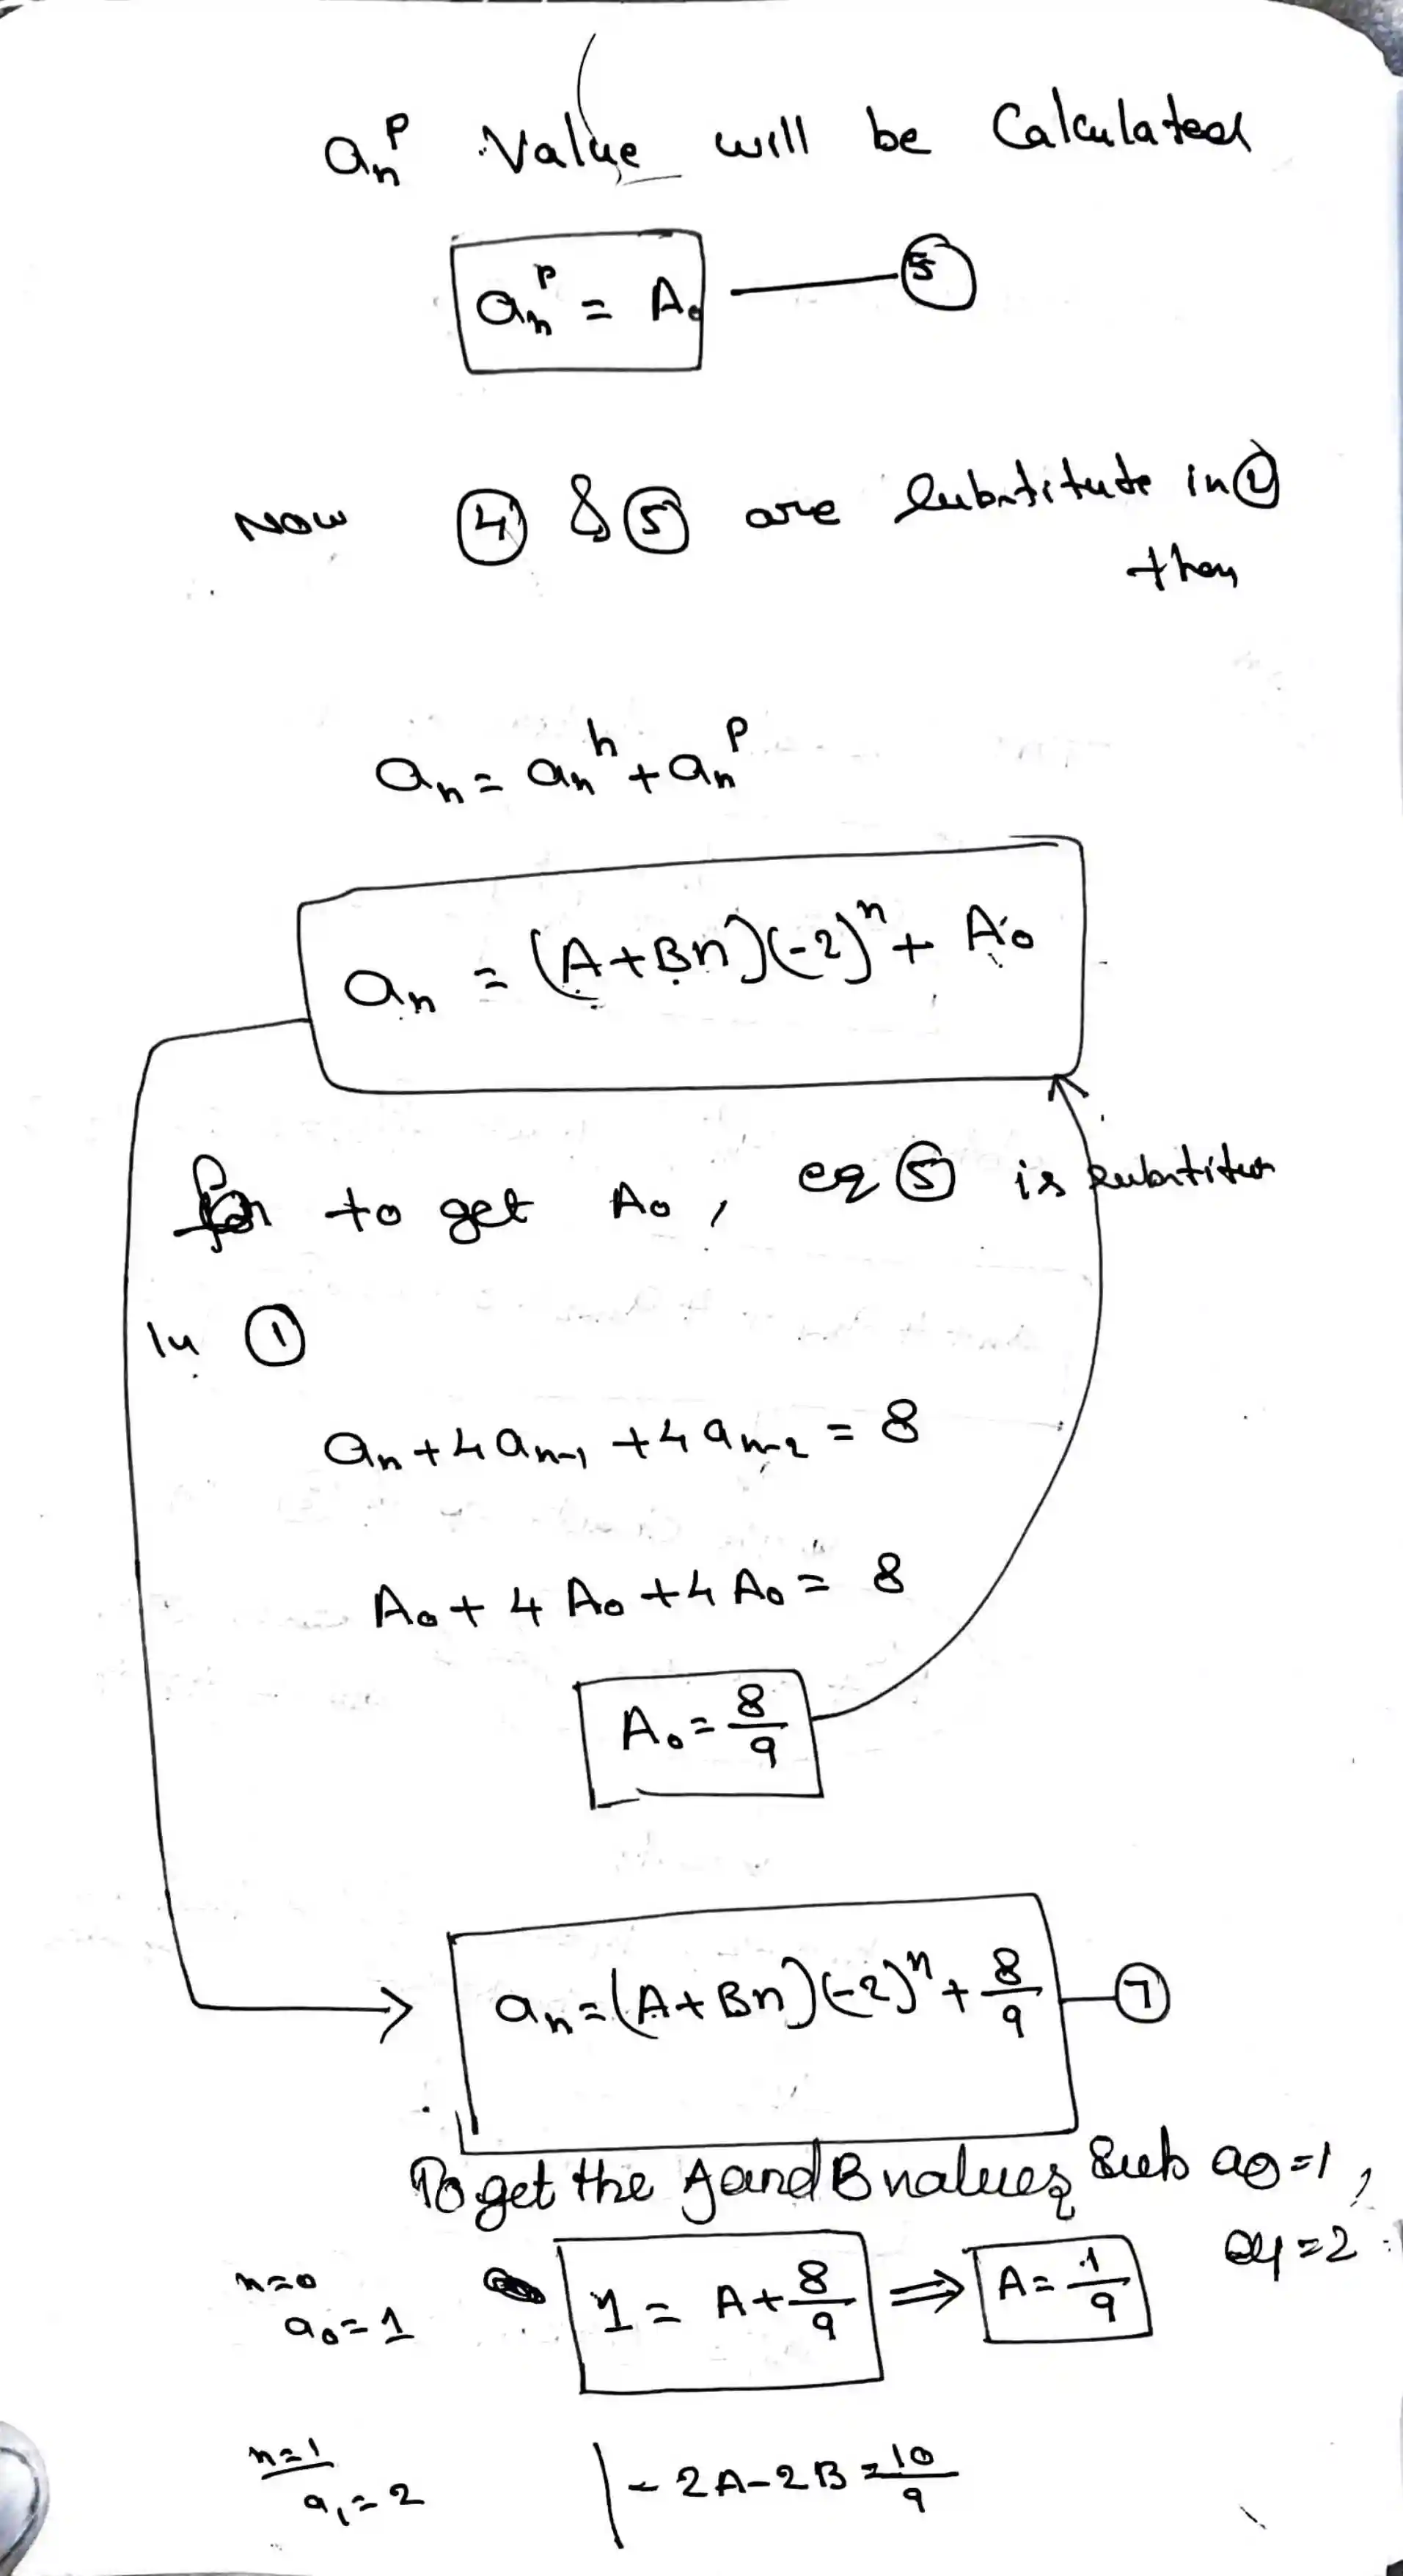 aₙᵖ Value will be Calculated
aₙᵖ = A₀ — ⑤
Now ④ & ⑤ are substitute in ②
then
aₙ = aₙʰ + aₙᵖ
aₙ = (A+Bn)(-2)ⁿ + A₀
for to get A₀, eq ⑤ is substitut
in ①
aₙ + 4aₙ₋₁ + 4aₙ₋₂ = 8
A₀ + 4A₀ + 4A₀ = 8
A₀ = 8/9
aₙ = (A+Bn)(-2)ⁿ + 8/9 — ⑦
To get the A and B values sub a₀=1,
a₁=2
n=0
a₀=1 1 = A + 8/9 ⇒ A = 1/9
n=1
a₁=2 -2A-2B = 10/9